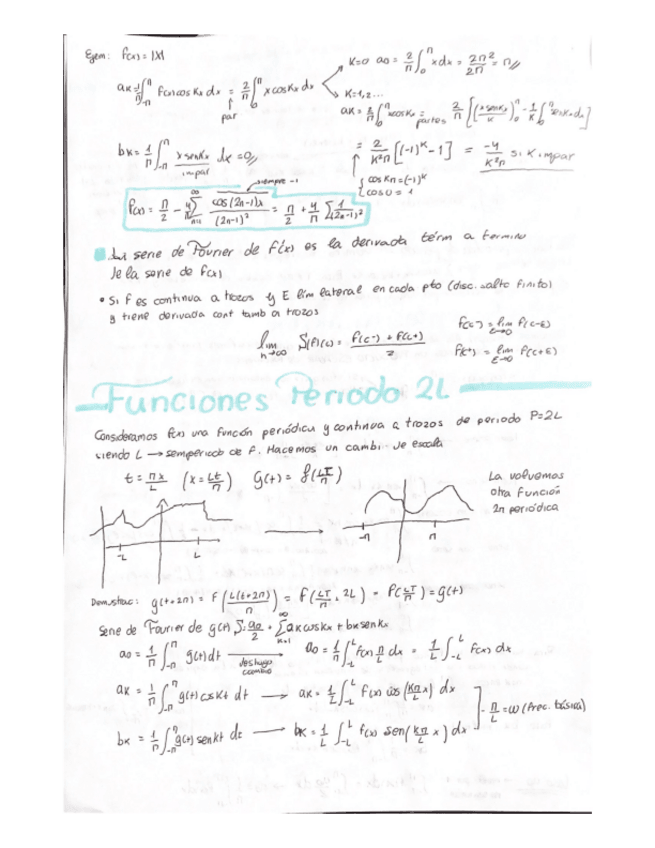 Ejem: f(x) = |x|
K=0 a0 = 2/π ∫_0^π x dx = 2π²/2π = π //
aK = 1/π ∫_{-π}^π f(x) cos Kx dx = 2/π ∫_0^π x cos Kx dx
par
K=1,2...
aK = 2/π ∫_0^π x cos Kx = partes 2/π [(x sen Kx / K)_0^π - 1/K ∫_0^π sen Kx dx]
bK = 1/π ∫_{-π}^π x sen Kx dx = 0 //
impar
= 2/K²π [(-1)^K - 1] = -4/K²π si K impar
{ cos Kπ = (-1)^K
cos 0 = 1
siempre -1
f(x) = π/2 - 4/π Σ_{n=1}^∞ cos(2n-1)x / (2n-1)² = π/2 + 4/π Σ 1/(2n-1)²
La serie de Fourier de f'(x) es la derivada térm a termino
de la serie de f(x)
• Si f es continua a trozos y E lim lateral en cada pto (disc. salto finito)
y tiene derivada cont tamb a trozos
lim_{n→∞} S(f)(c) = f(c-) + f(c+) / 2
f(c-) = lim_{ε→0} f(c-ε)
f(c+) = lim_{ε→0} f(c+ε)
Funciones Periodo 2L
Consideramos f(x) una función periódica y continua a trozos de periodo P=2L
siendo L → semiperiodo de f. Hacemos un cambio de escala
t = πx/L (x = Lt/π) g(t) = f(LT/π)
La volvemos
otra función
2π periódica
-L L
-π π
Demostrac: g(t+2π) = f(L(t+2π)/π) = f(LT/π + 2L) = f(LT/π) = g(t)
Serie de Fourier de g(t) S: a0/2 + Σ_{K=1}^∞ aK cos Kx + bK sen Kx
a0 = 1/π ∫_{-π}^π g(t) dt → deshago cambio a0 = 1/π ∫_{-L}^L f(x) π/L dx = 1/L ∫_{-L}^L f(x) dx
aK = 1/π ∫_{-π}^π g(t) cos Kt dt → aK = 1/L ∫_{-L}^L f(x) cos (Kπ/L x) dx
bK = 1/π ∫_{-π}^π g(t) sen Kt dt → bK = 1/L ∫_{-L}^L f(x) sen (Kπ/L x) dx
] - π/L = ω (frec. básica)